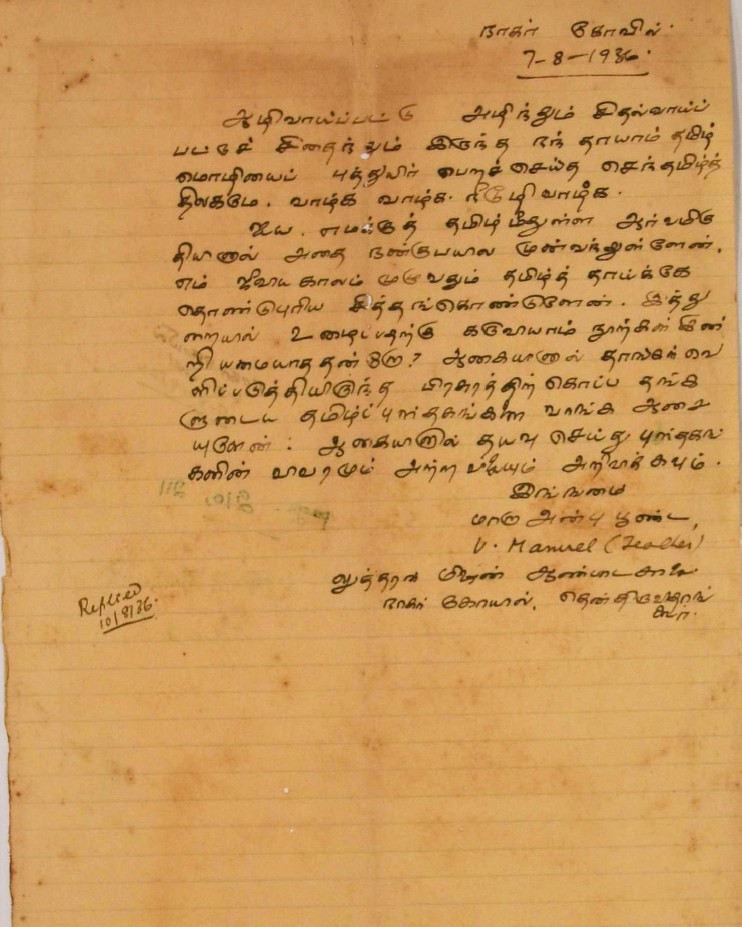 நாகர் கோவில்.
7-8-1936.
ஆழிவாய்ப்பட்டு அழிந்தும் சிதல்வாய்ப்
பட்டுச் சிதைந்தும் இருந்த நந் தாயாம் தமிழ்
மொழியைப் புத்துயிர் பெறச்செய்த செந்தமிழ்த்
திலகமே. வாழ்க வாழ்க. நீடூழி வாழ்க.
ஐய. எமக்குத் தமிழ் மீதுள்ள ஆர்வமிகு
தியினால் அதை முன்வந்துள்ளேன்.
எம் ஜீவிய காலம் முழுவதும் தமிழ்த் தாய்க்கே
தொண்டுபுரிய சித்தங்கொண்டுளேன். இத்து
றையில் உழைப்பதற்கு கருவியாம் நூற்கள் இன்
றியமையாததன்றோ? ஆகையினால் தாங்கள் வெ
ளிப்படுத்தியிருந்த பிரசுரத்திற் கொப்ப தங்க
ளுடைய தமிழ்ப் புஸ்தகங்களை வாங்க ஆசை
யுளேன். ஆகையினால் தயவு செய்து புஸ்தகங்
களின் விவரமும் அற்ற விலையும் அறிவிக்கவும்.
இங்ஙனம்
மாறா அன்பு பூண்ட,
V. Manuel (Teacher)
லுத்தரன் மிஷன்
நாகர் கோயில், தென் திருவிதாங்
கூர்.
Replied
10/8/36.